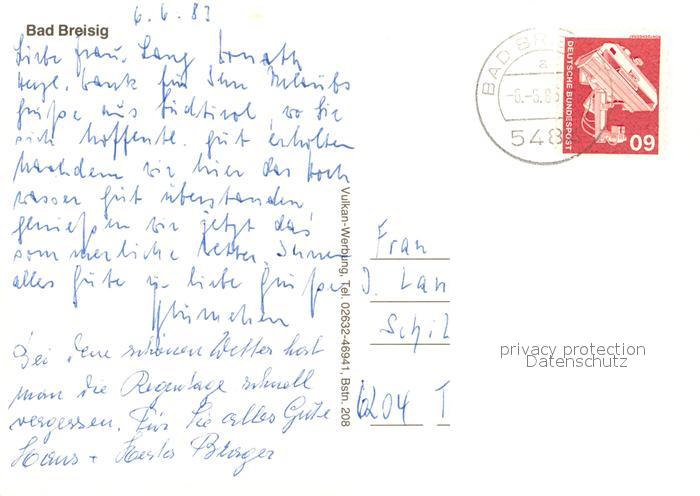 6.6.83
Bad Breisig
Liebe Frau Lang
herzl. Dank für Ihre Urlaubs
grüße aus Südtirol, wo Sie
sich hoffentl. gut erholten
Nachdem wir hier das Hoch
wasser gut überstanden
genießen wir jetzt das
sommerliche Wetter. Ihnen
alles Gute u. liebe Grüße
Blümchen
Bei dem schönen Wetter hat
man die Regentage schnell
vergessen. Für Sie alles Gute
Hans +
Vulkan-Werbung, Tel. 02632-46941, Bstn. 208
Frau
J. Lan
Schil
6204 T
BAD BRE
a
-6.-6.83
548
DEUTSCHE BUNDESPOST
60
privacy protection
Datenschutz